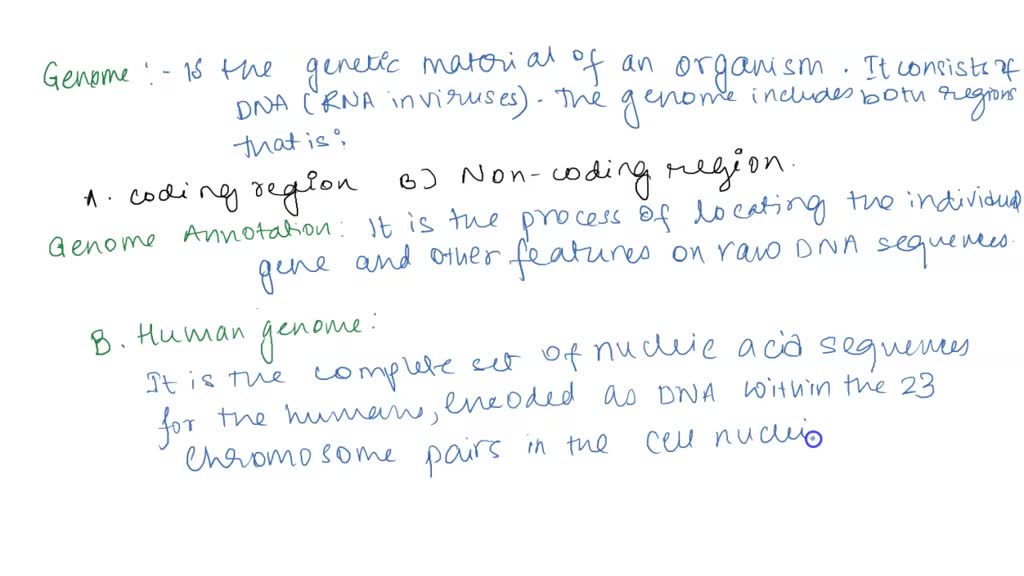 Genome :- Is the genetic material of an organism. It consists of
DNA (RNA in viruses). The genome includes both regions
that is:
A. coding region B) Non-coding region.
Genome Annotation: It is the process of locating the individual
gene and other features on raw DNA sequences.
B. Human genome:
It is the complete set of nucleic acid sequences
for the humans, encoded as DNA within the 23
chromosome pairs in the cell nuclei